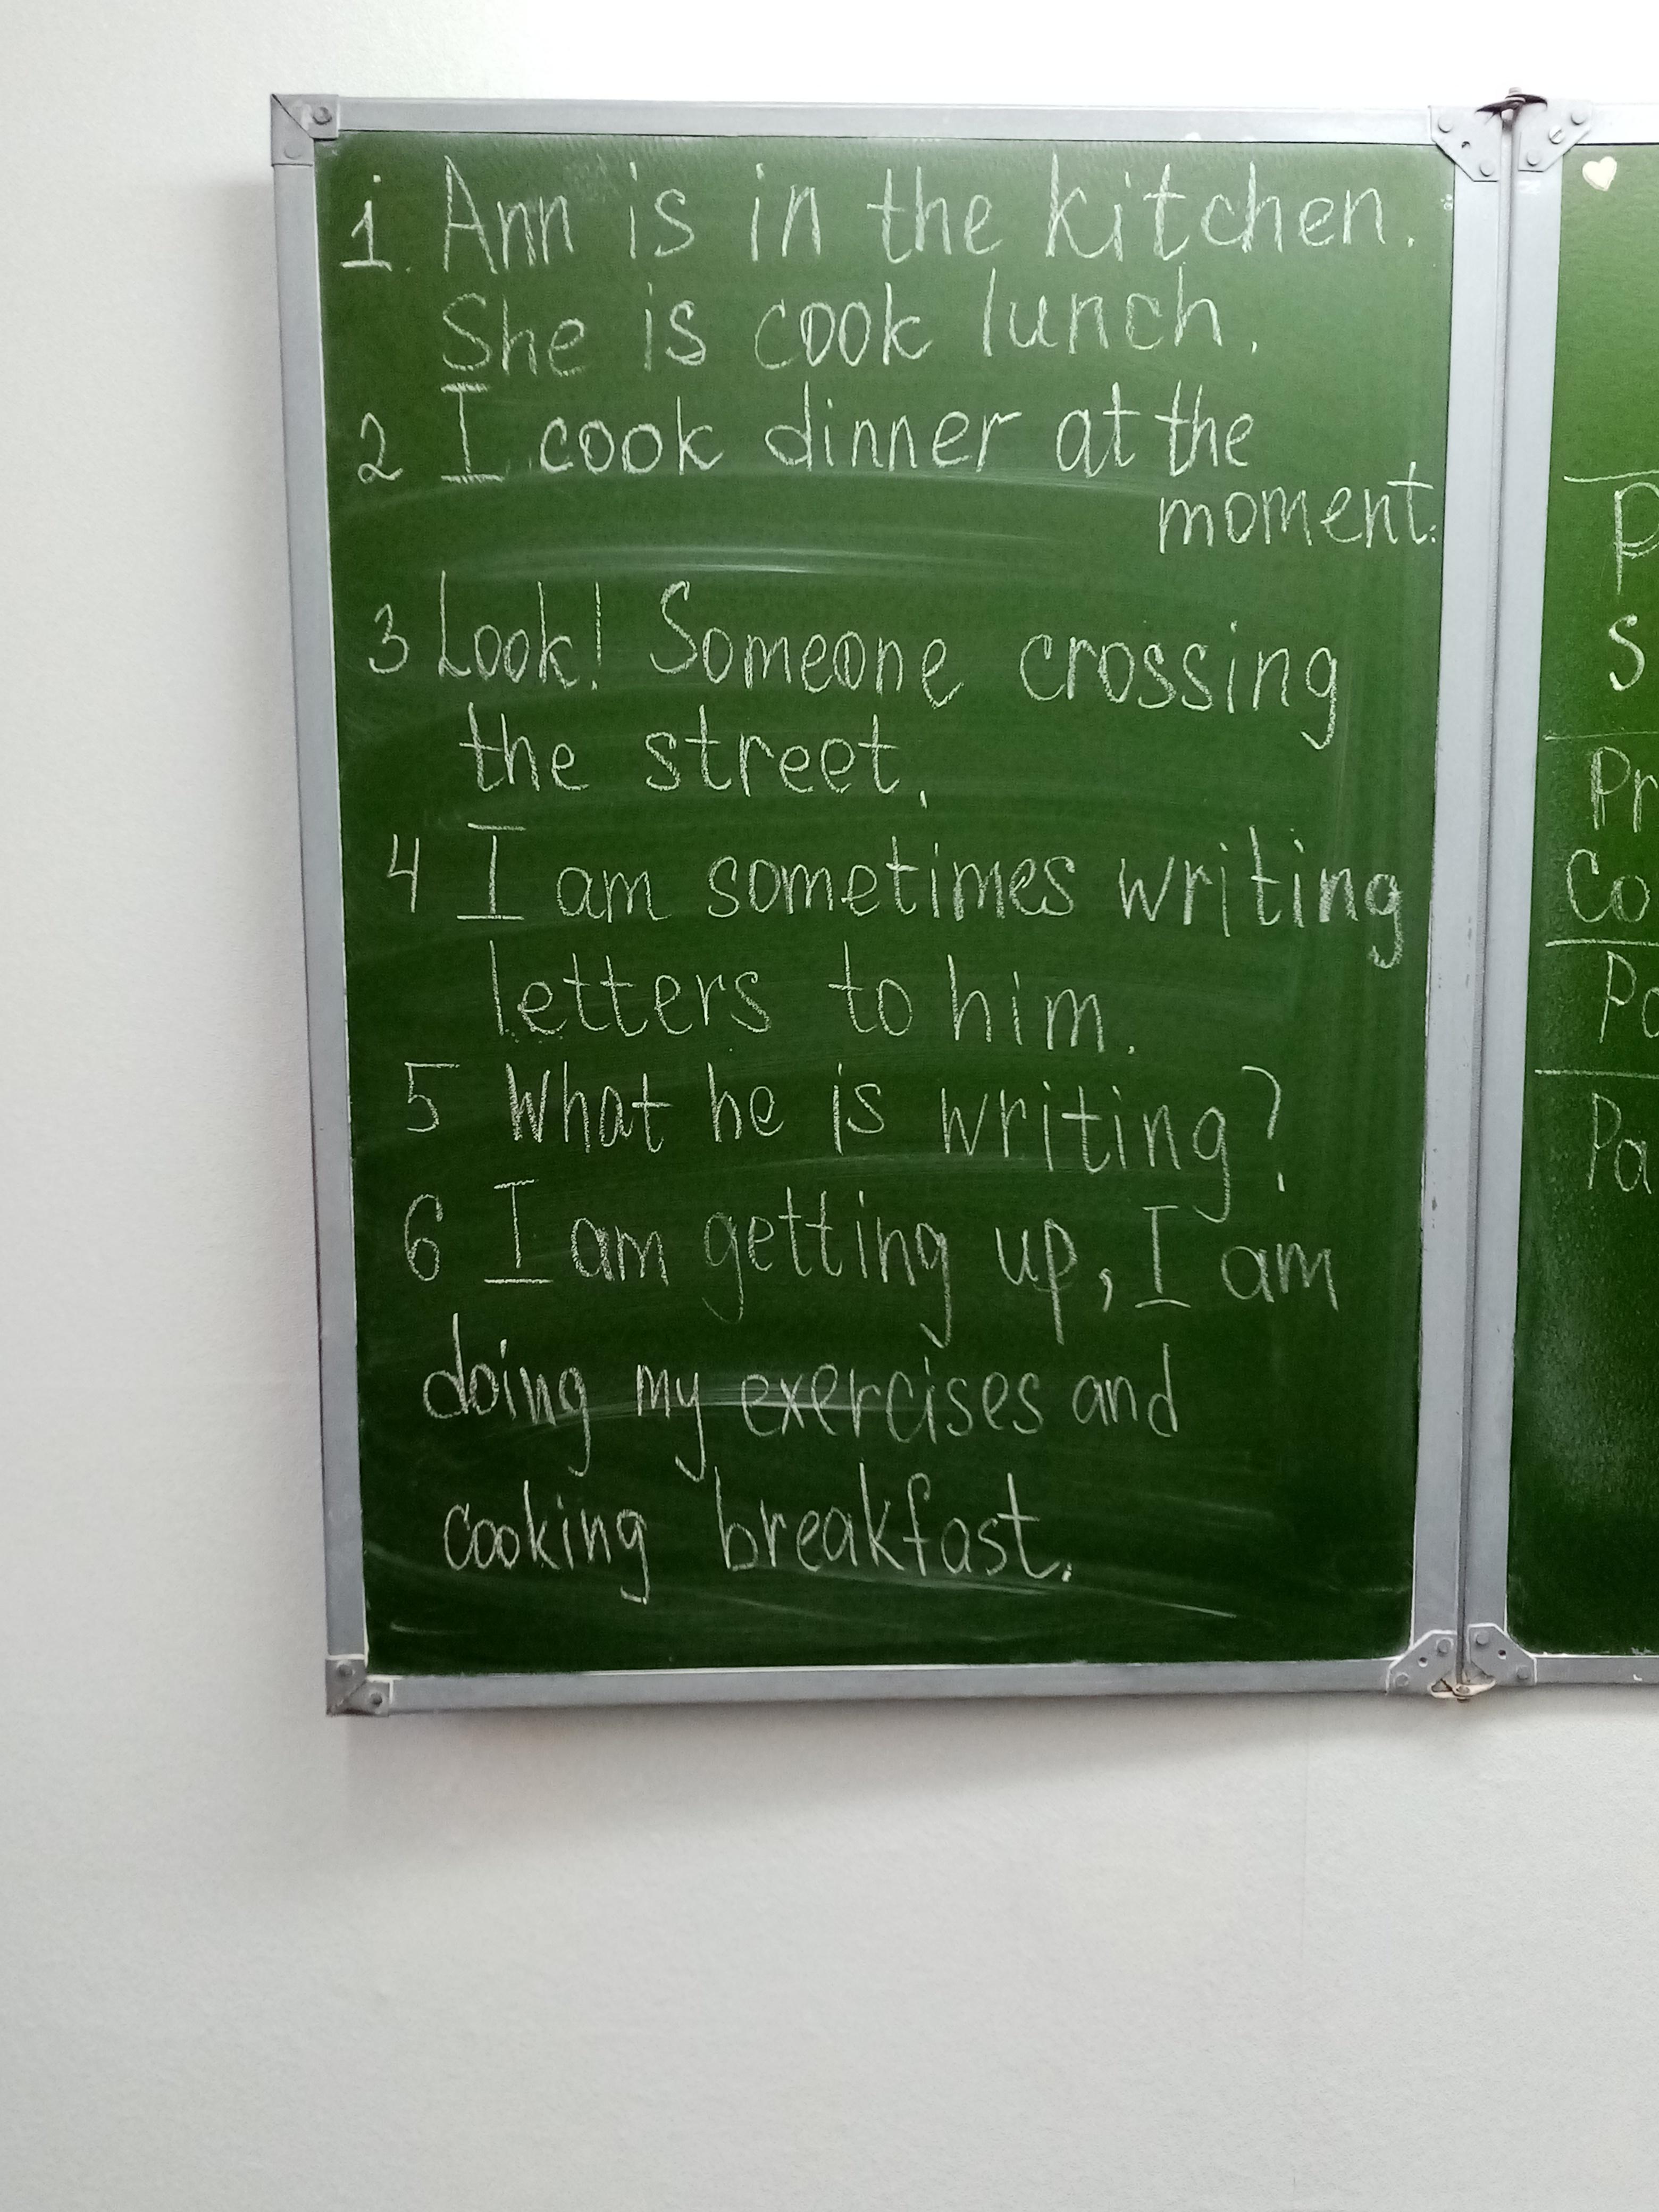 1. Ann is in the kitchen.
She is cook lunch.
2 I cook dinner at the
moment.
3 Look! Someone crossing
the street.
4 I am sometimes writing
letters to him.
5 What he is writing?
6 I am getting up, I am
doing my exercises and
cooking breakfast.